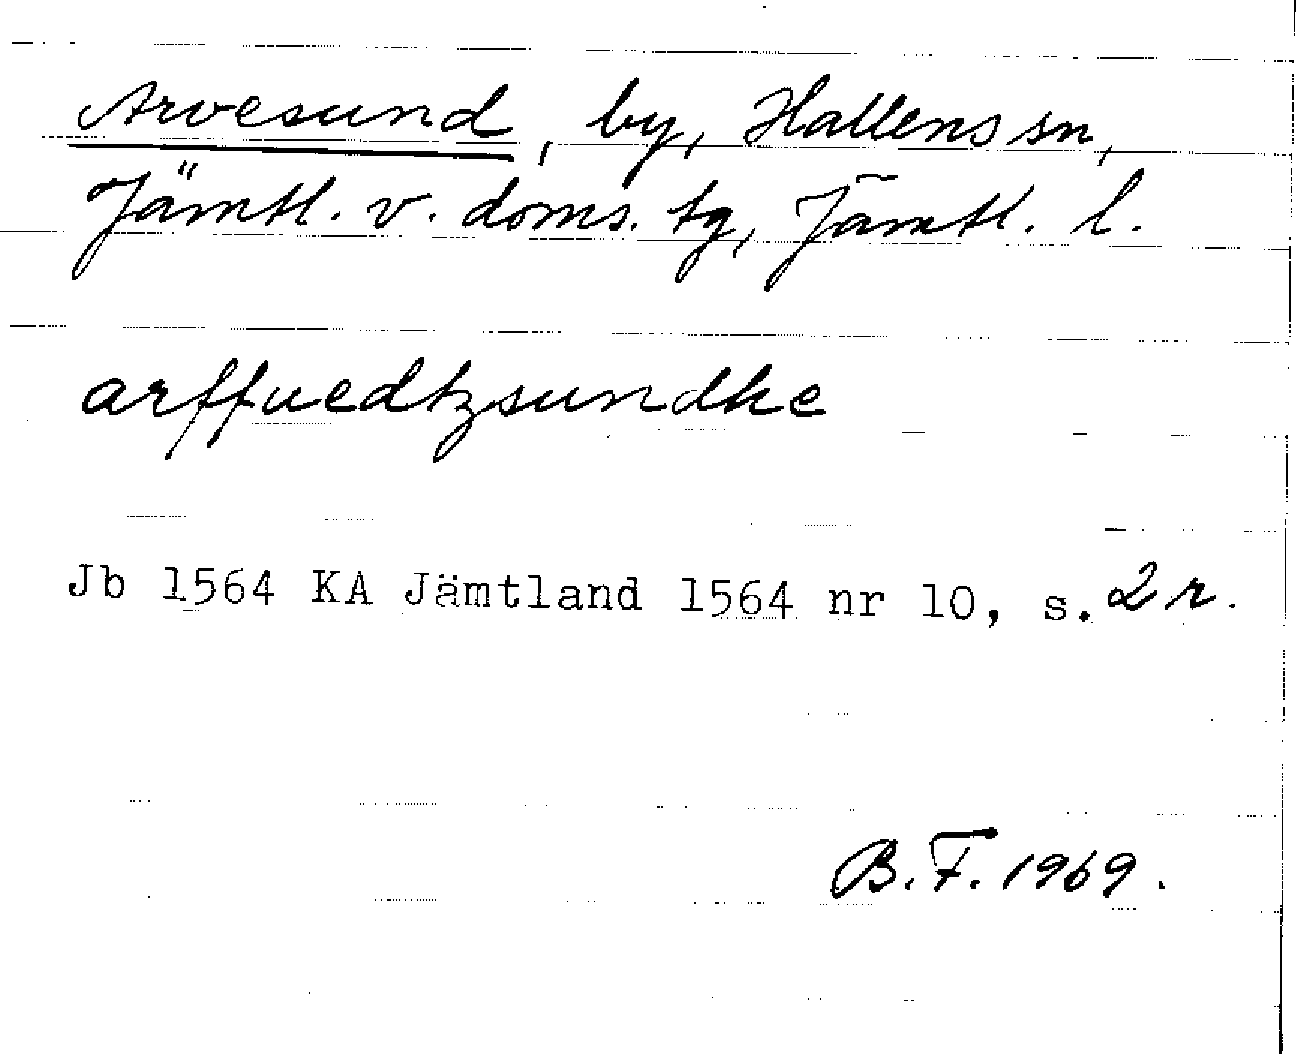 Arvesund, by, Hallens sn,
Jämtl. v. doms. tg, Jämtl. l.
arffuedtzsundhe
Jb 1564 KA Jämtland 1564 nr 10, s. 2r.
B.F. 1969.